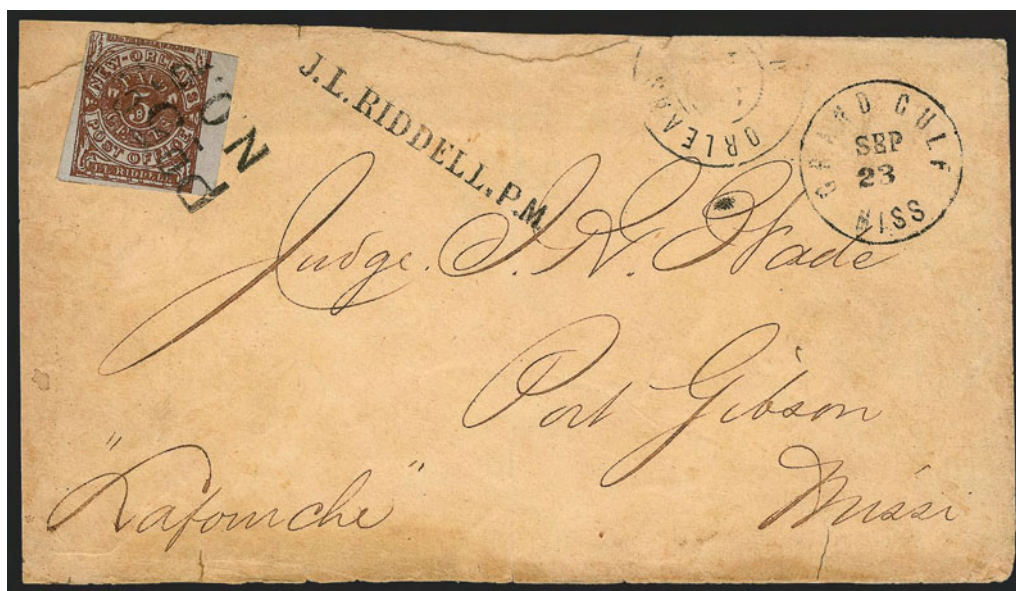 NEW-ORLEANS
PAID
5
CENTS
POST OFFICE
J.L. RIDDELL
J.L.RIDDELL.P.M.
ORLEANS
GRAND GULF
SEP
23
MISS
Judge. J. N. Wade
Port Gibson
"Lafourche"
Missi